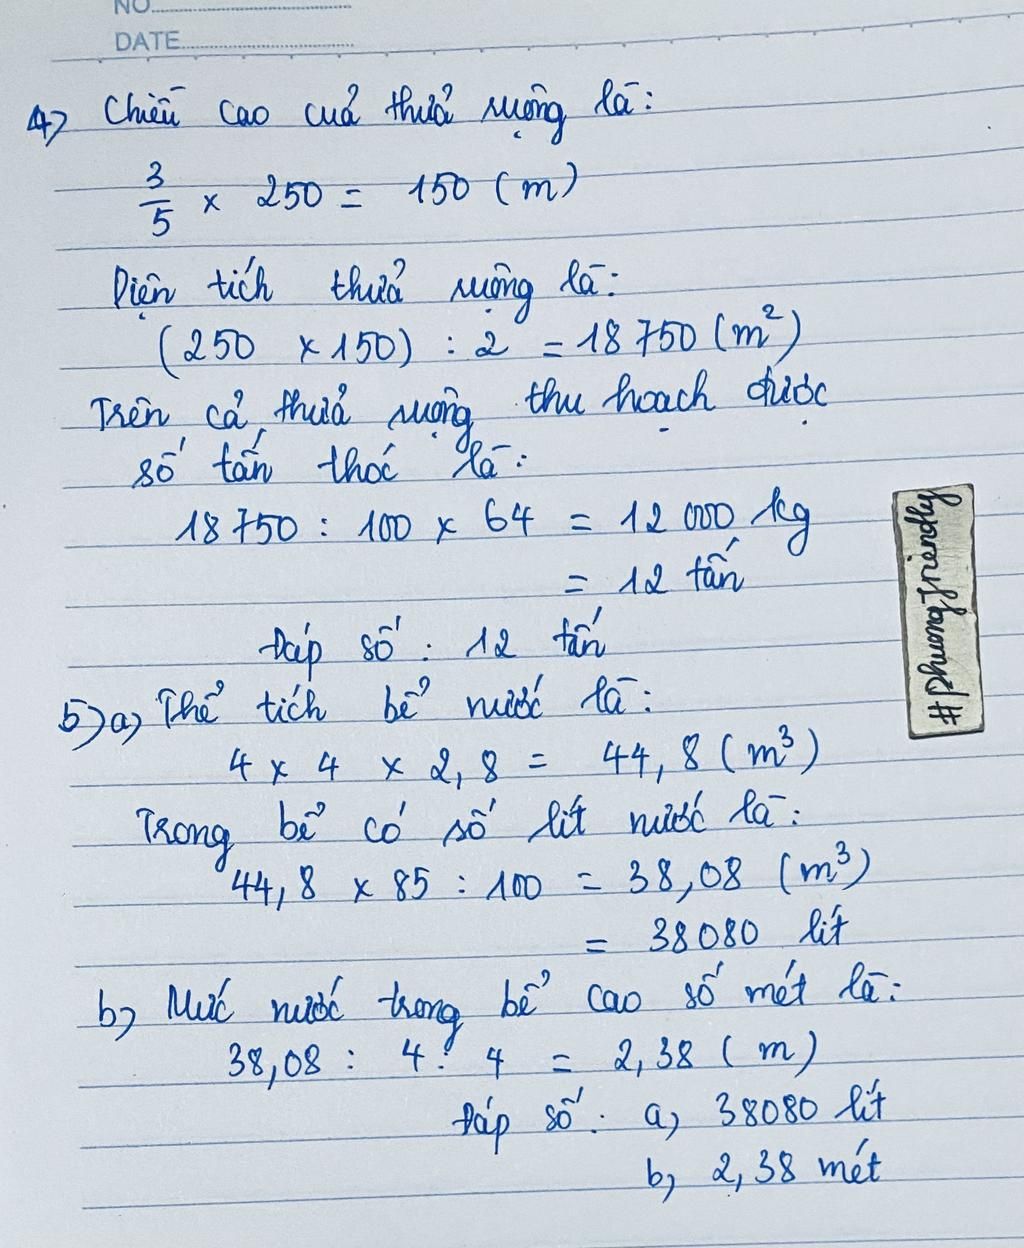 NO
DATE
4) Chiều cao của thửa ruộng là:
3/5 x 250 = 150 (m)
Diện tích thửa ruộng là:
(250 x 150) : 2 = 18 750 (m²)
Trên cả thửa ruộng thu hoạch được
số tấn thóc là:
18 750 : 100 x 64 = 12 000 kg
= 12 tấn
Đáp số : 12 tấn
5) a, Thể tích bể nước là:
4 x 4 x 2,8 = 44,8 (m³)
Trong bể có số lít nước là:
44,8 x 85 : 100 = 38,08 (m³)
= 38080 lít
b, Mức nước trong bể cao số mét là:
38,08 : 4 : 4 = 2,38 (m)
Đáp số : a, 38080 lít
b, 2,38 mét
#Phuongfriendly